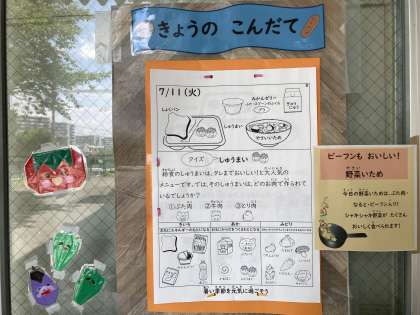 きょうの こんだて
7/11(火)
しょくパン
みかんゼリー
ぎゅうにゅう
しゅうまい
やさいいため
クイズ
しゅうまい
給食のしゅうまいは、タレまでおいしい!と大人気の
メニューです。では、そのしゅうまいは、どのお肉で作られて
いるでしょうか?
①ぶた肉 ②牛肉 ③とり肉
きいろ
あか
みどり
暑い季節を元気に過ごそう
ビーフンも おいしい!
野菜いため
今日の野菜いためは、ぶた肉・
なると・ビーフン入り!
シャキシャキ野菜が たくさん
おいしく食べられます!